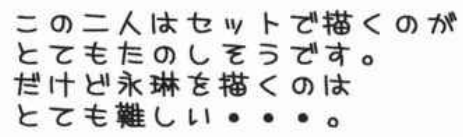 この二人はセットで描くのが
とてもたのしそうです。
だけど永琳を描くのは
とても難しい・・・。